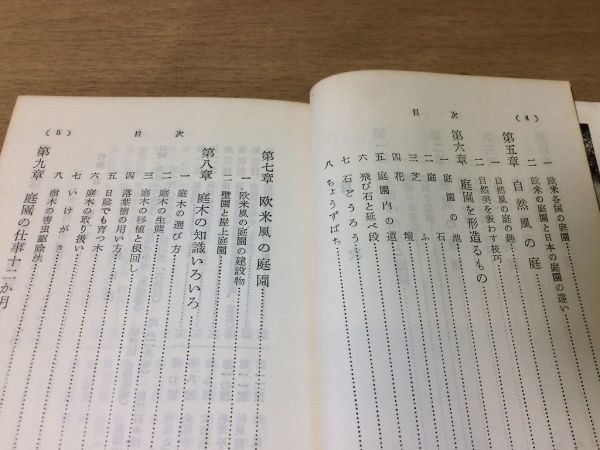 (4)
目次
一 欧米各国の庭園
二 欧米の庭園と日本の庭園の違い
第五章 自然風の庭
一 自然風の庭の趣き
二 自然美を表わす技巧
第六章 庭園を形造るもの
一 庭園の池
二 庭石
三 芝ふ
四 花壇
五 庭園内の道
六 飛び石と延べ段
七 石どうろう
八 ちょうずばち
目次
(5)
第七章 欧米風の庭園
一 欧米風の庭園の建設物
二 壁園と屋上庭園
第八章 庭木の知識いろいろ
一 庭木の選び方
二 庭木の生態
三 庭木の移植と根回し
四 落葉樹の用い方
五 日陰でも育つ木
六 庭木の取り扱い
七 いけがき
八 樹木の害虫駆除法
第九章 庭園の仕事十二か月